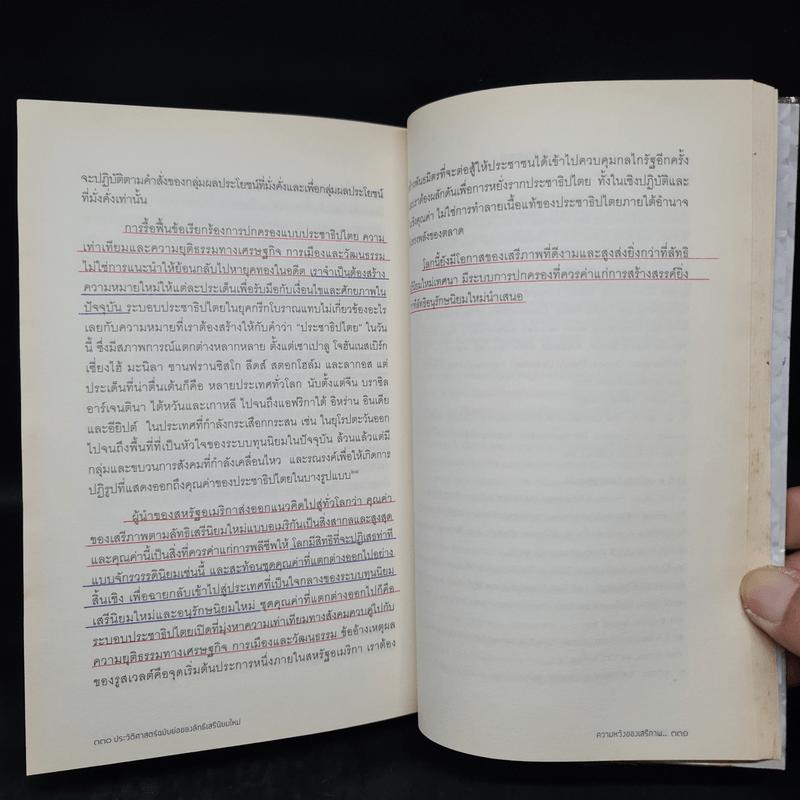 จะปฏิบัติตามคำสั่งของกลุ่มผลประโยชน์ที่มั่งคั่งและเพื่อกลุ่มผลประโยชน์
ที่มั่งคั่งเท่านั้น
การรื้อฟื้นข้อเรียกร้องการปกครองแบบประชาธิปไตย ความ
เท่าเทียมและความยุติธรรมทางเศรษฐกิจ การเมืองและวัฒนธรรม
ไม่ใช่การแนะนำให้ย้อนกลับไปหายุคทองในอดีต เราจำเป็นต้องสร้าง
ความหมายใหม่ให้แต่ละประเด็นเพื่อรับมือกับเงื่อนไขและศักยภาพใน
ปัจจุบัน ระบอบประชาธิปไตยในยุคกรีกโบราณแทบไม่เกี่ยวข้องอะไร
เลยกับความหมายที่เราต้องสร้างให้กับคำว่า "ประชาธิปไตย" ในวัน
นี้ ซึ่งมีสภาพการณ์แตกต่างหลากหลาย ตั้งแต่เซาเปาลู โจฮันเนสเบิร์ก
เซี่ยงไฮ้ มะนิลา ซานฟรานซิสโก ลีดส์ สตอกโฮล์ม และลากอส แต่
ประเด็นที่น่าตื่นเต้นก็คือ หลายประเทศทั่วโลก นับตั้งแต่จีน บราซิล
อาร์เจนตินา ไต้หวันและเกาหลี ไปจนถึงแอฟริกาใต้ อิหร่าน อินเดีย
และอียิปต์ ในประเทศที่กำลังกระเสือกกระสน เช่น ในยุโรปตะวันออก
ไปจนถึงพื้นที่ที่เป็นหัวใจของระบบทุนนิยมในปัจจุบัน ล้วนแล้วแต่มี
กลุ่มและขบวนการสังคมที่กำลังเคลื่อนไหว และรณรงค์เพื่อให้เกิดการ
ปฏิรูปที่แสดงออกถึงคุณค่าของประชาธิปไตยในบางรูปแบบ๒๙
ผู้นำของสหรัฐอเมริกาส่งออกแนวคิดไปสู่ทั่วโลกว่า คุณค่า
ของเสรีภาพตามลัทธิเสรีนิยมใหม่แบบอเมริกันเป็นสิ่งสากลและสูงสุด
และคุณค่านี้เป็นสิ่งที่ควรค่าแก่การพลีชีพให้ โลกมีสิทธิที่จะปฏิเสธท่าที
แบบจักรวรรดินิยมเช่นนี้ และสะท้อนชุดคุณค่าที่แตกต่างออกไปอย่าง
สิ้นเชิง เพื่อฉายกลับเข้าไปสู่ประเทศที่เป็นใจกลางของระบบทุนนิยม
เสรีนิยมใหม่และอนุรักษนิยมใหม่ ชุดคุณค่าที่แตกต่างออกไปก็คือ
ระบอบประชาธิปไตยเปิดที่มุ่งหาความเท่าเทียมทางสังคมควบคู่ไปกับ
ความยุติธรรมทางเศรษฐกิจ การเมืองและวัฒนธรรม ข้ออ้างเหตุผล
ของรูสเวลต์คือจุดเริ่มต้นประการหนึ่งภายในสหรัฐอเมริกา เราต้อง
๓๓๐ ประวัติศาสตร์ฉบับย่อของลัทธิเสรีนิยมใหม่
พันธมิตรที่จะต่อสู้ให้ประชาชนได้เข้าไปควบคุมกลไกรัฐอีกครั้ง
ต้องผลักดันเพื่อการหยั่งรากประชาธิปไตย ทั้งในเชิงปฏิบัติและ
คุณค่า ไม่ใช่การทำลายเนื้อแท้ของประชาธิปไตยภายใต้อำนาจ
ของพลังของตลาด
โลกนี้ยังมีโอกาสของเสรีภาพที่ดีงามและสูงส่งยิ่งกว่าที่ลัทธิ
นิยมใหม่เทศนา มีระบบการปกครองที่ควรค่าแก่การสร้างสรรค์ยิ่ง
ที่ลัทธิอนุรักษนิยมใหม่นำเสนอ
ความหวังของเสรีภาพ... ๓๓๑